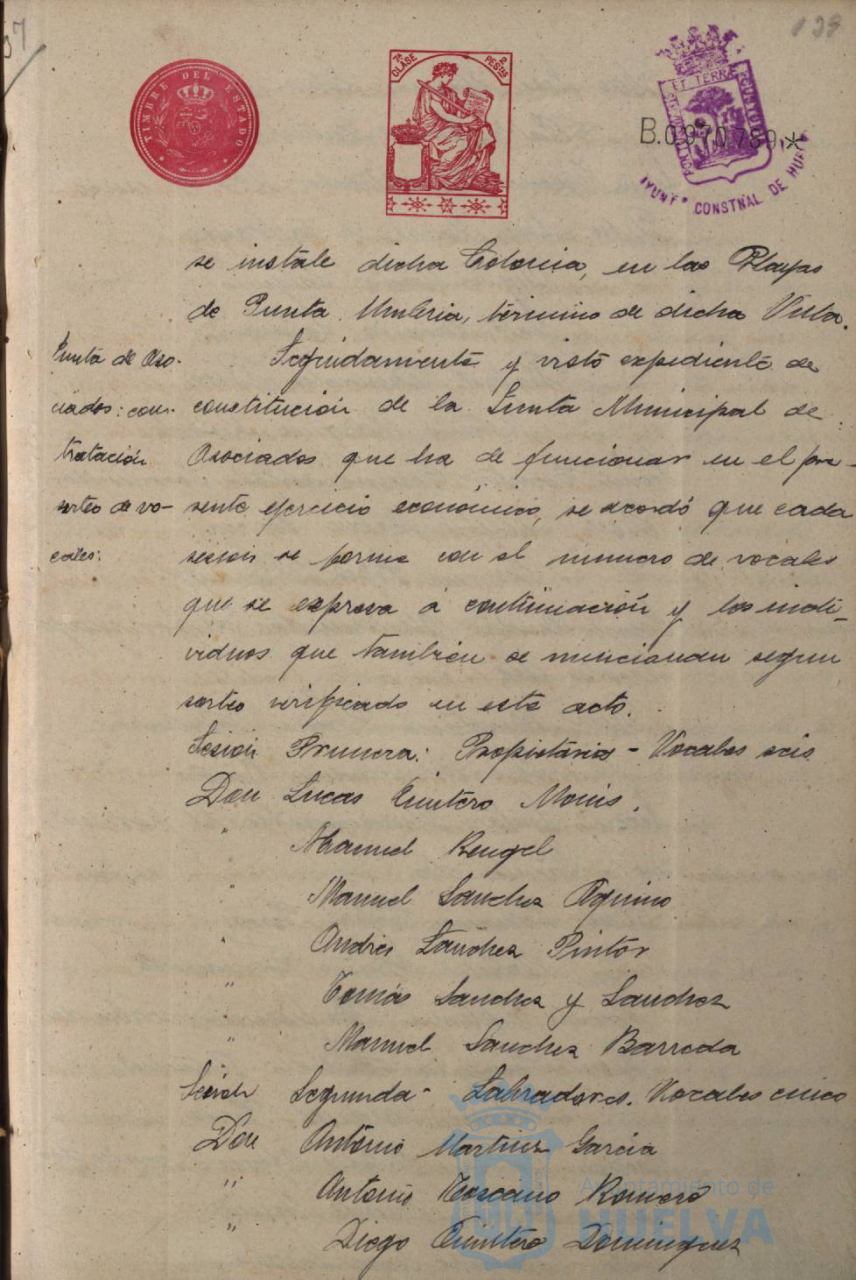 139
TIMBRE DEL ESTADO
7ª CLASE
2 PESTAS
ET TERRÆ
B.0.970.789,*
AYUNTº CONSTNAL DE HUELVA
se instale dicha Colonia, en las Playas
de Punta Umbria, término de dicha Villa.
Junta de Aso-
ciados: cons-
tratación
sorteo de vo-
cales:
Seguidamente y visto expediente de
constitución de la Junta Municipal de
Asociados que ha de funcionar en el pre-
sente ejercicio económico, se acordó que cada
sesion se forme con el numero de vocales
que se expresa á continuación y los indi-
viduos que tambien se mencionan segun
sorteo verificado en este acto.
Sesión Primera: Propietaria - Vocales seis
Don Lucas Quintero Monis.
" Manuel Rengel
" Manuel Sanchez Aquino
" Andres Sanchez Pintor
" Tomás Sanchez y Sanchez
" Manuel Sanchez Barreda
Sesión Segunda - Labradores. Vocales cinco
Don Antonio Martinez Garcia
" Antonio Toscano Romero
" Diego Quintero Dominguez
Ayuntamiento de
HUELVA